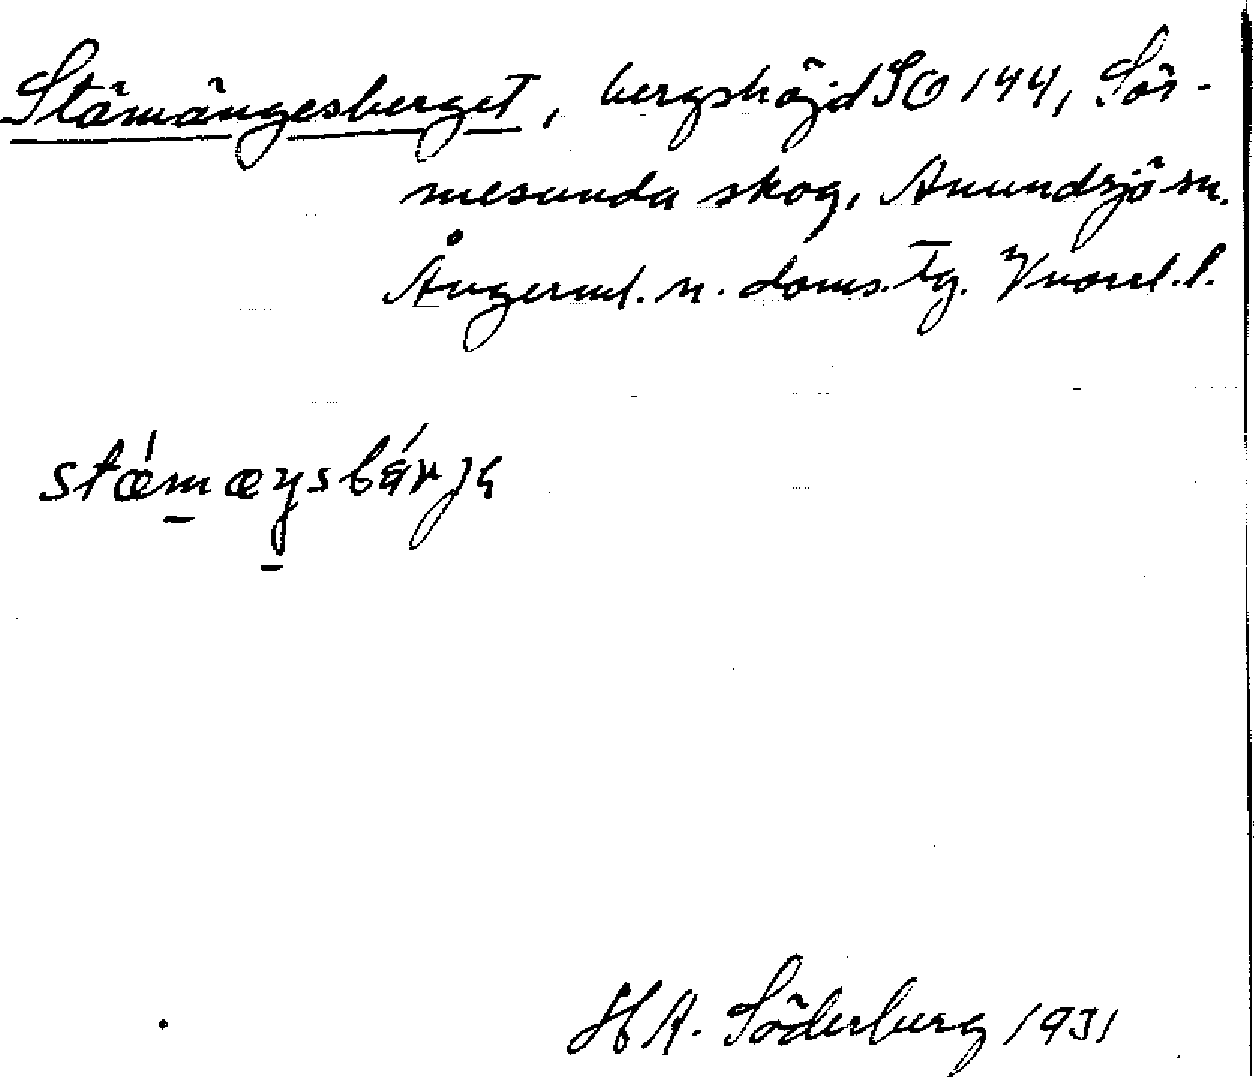 Stämängesberget, bergshöjd SO 144, Sör-
mesunda skog, Anundsjö sn.
Ångerml. n. doms. tg.
stǽmæŋsbǽrjɑ
H A. Söderberg 1931